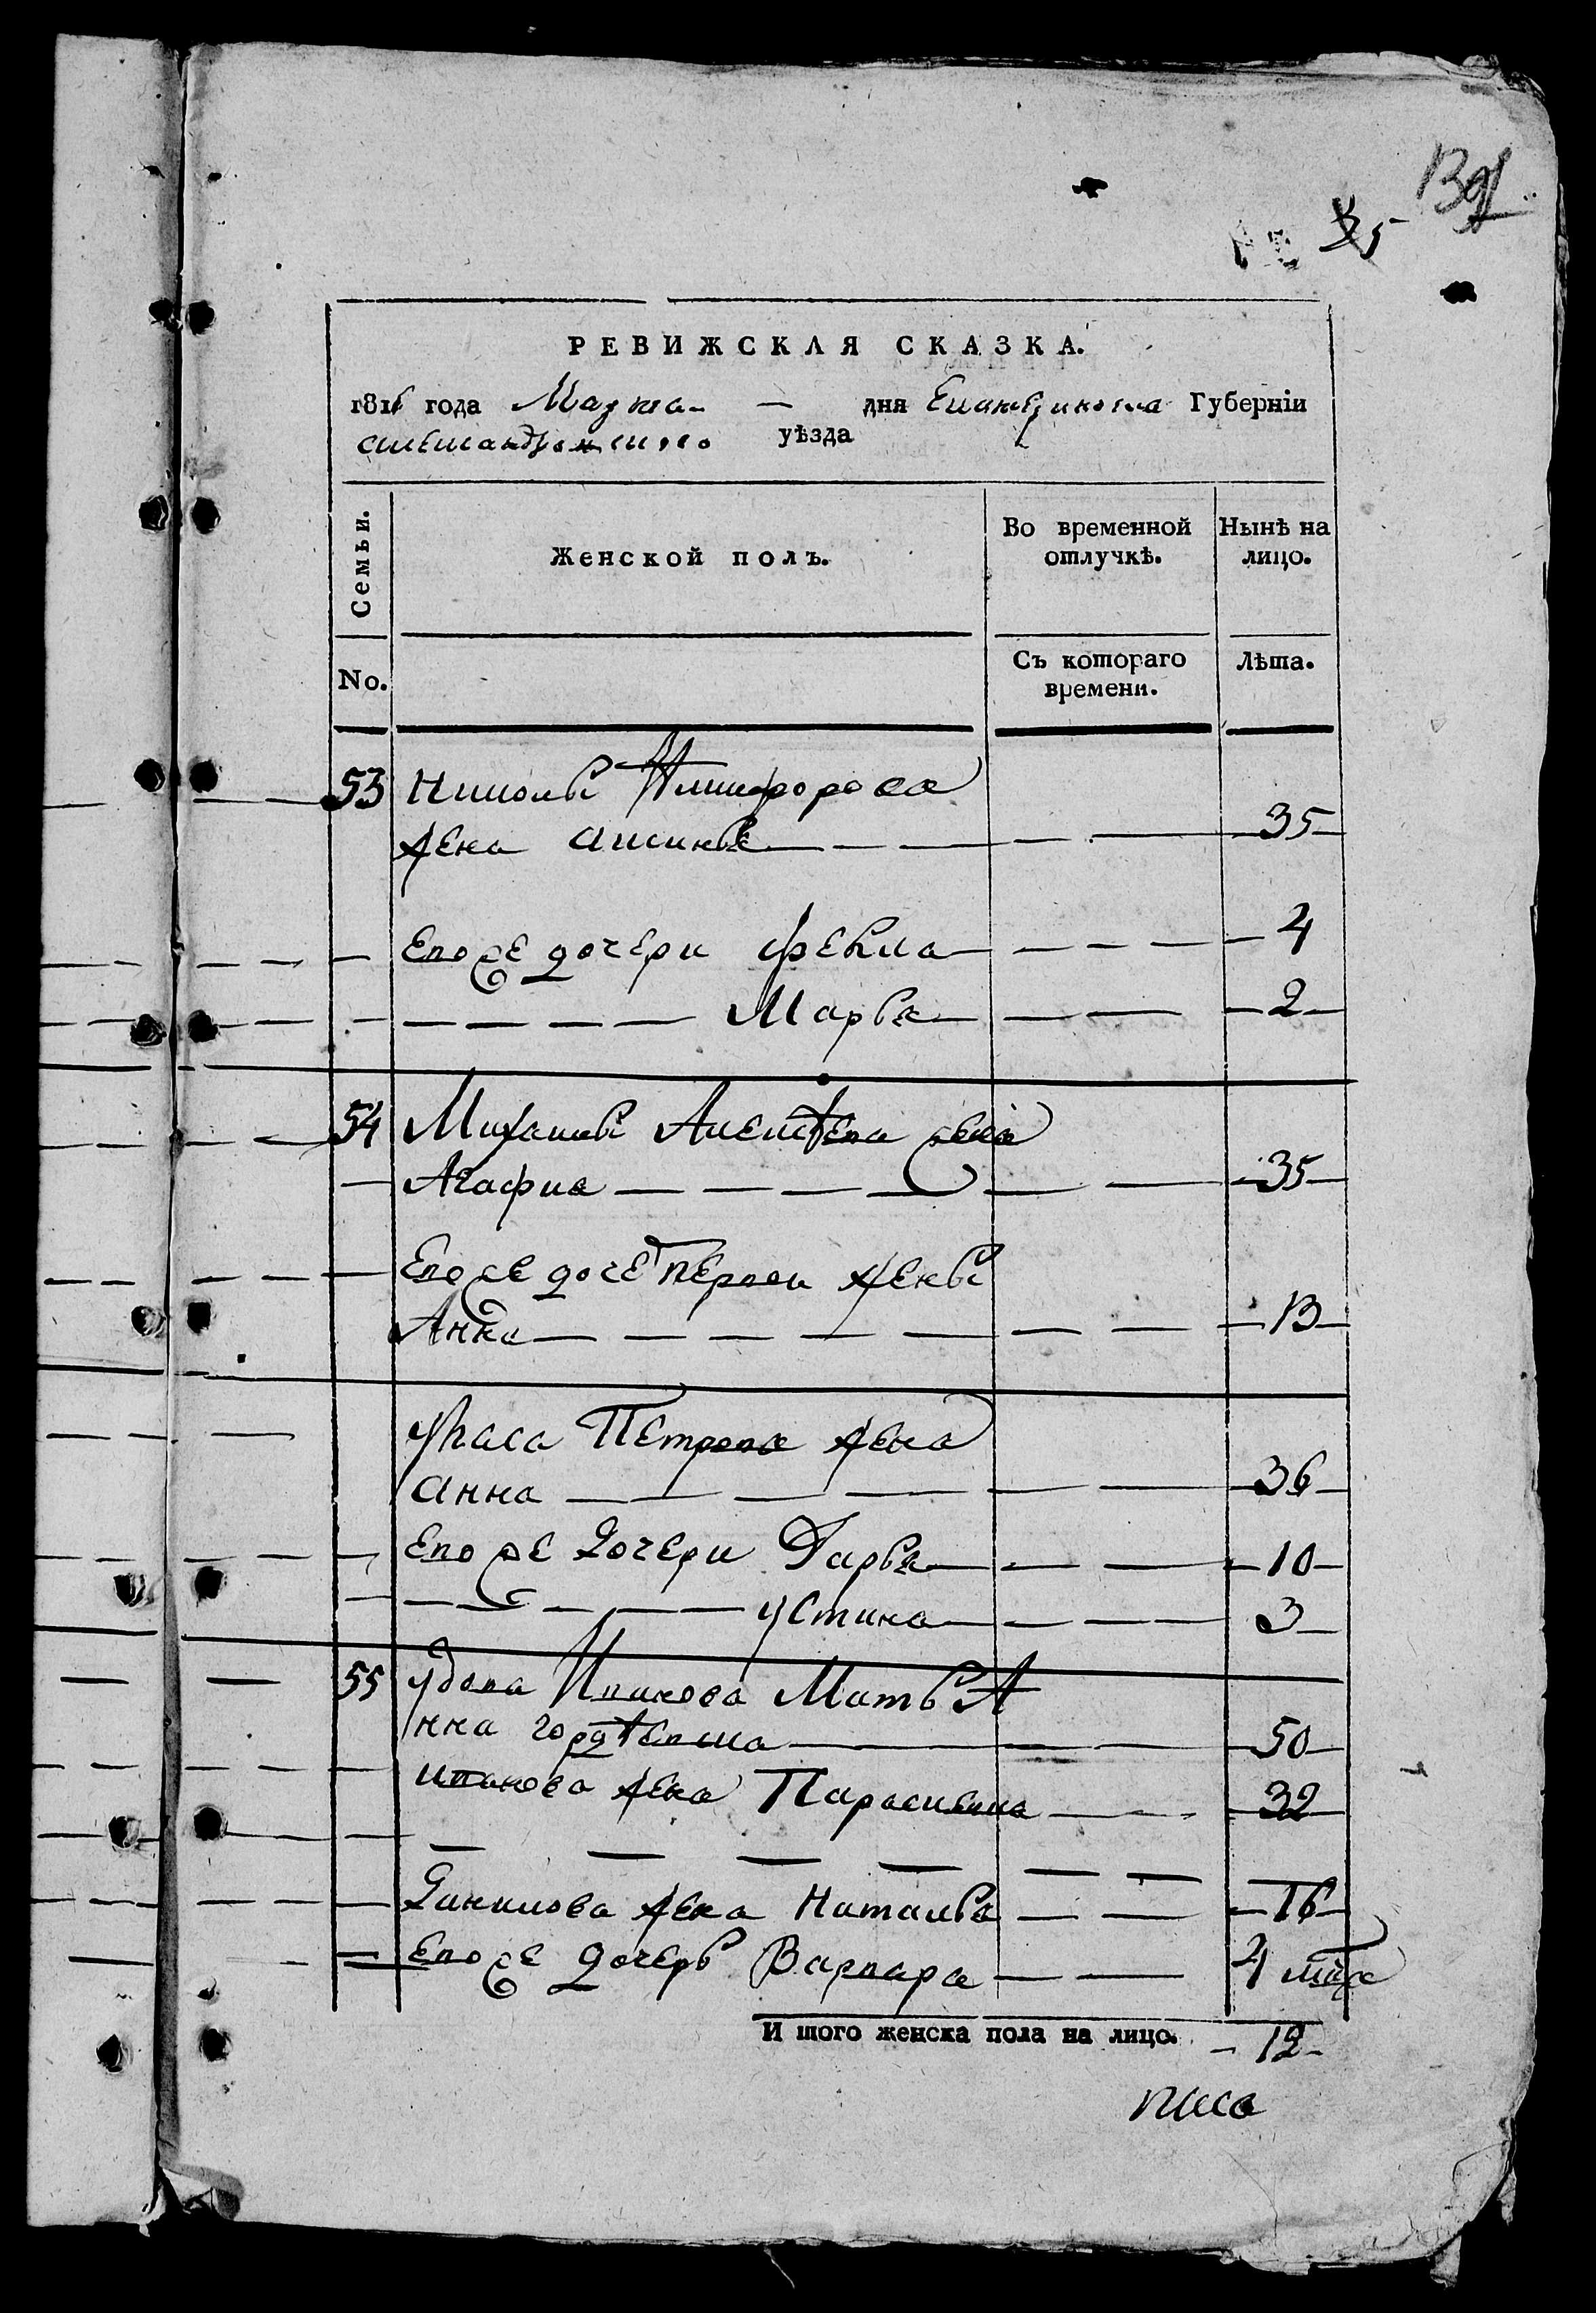 139
35
РЕВИЖСКАЯ СКАЗКА.
1816 года Марта — дня Екатериносла Губерніи
александрійского уѣзда
Семьи. Женской полъ. Во временной отлучкѣ. Нынѣ на лицо.
No. Съ котораго времени. Лѣта.
53 Николы Никифорова
жена аксинья — 35
Его же дочери фекла — 4
— Марья — 2
54 Михайлы Алексѣева жена
Агафия — 35
Его же доче первой жены
Анна — 13
уласа Петрова жена
анна — 36
Его же дочери Дарья — 10
— устина — 3
55 удова Иванова Мать А
нна гордѣевна — 50
иванова жена Параскевия — 32
Данилова жена Наталья — 16
Его же дочерь Варвара — 4 мца
И того женска пола на лицо. — 12